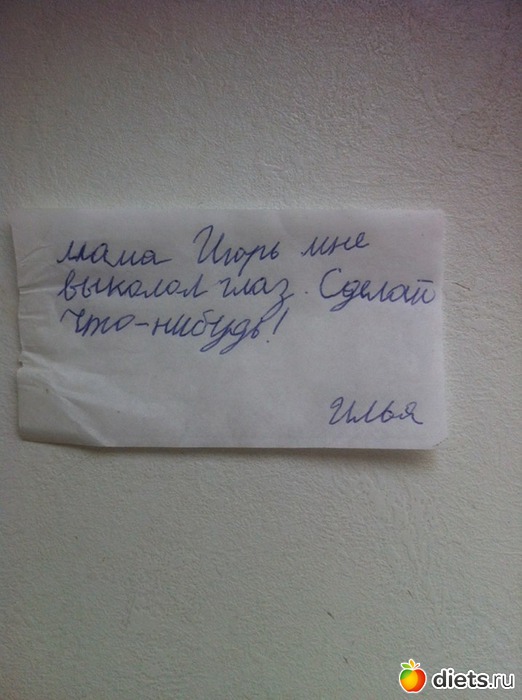 мама Игорь мне
выколол глаз. Сделай
что-нибудь!
Илья
diets.ru